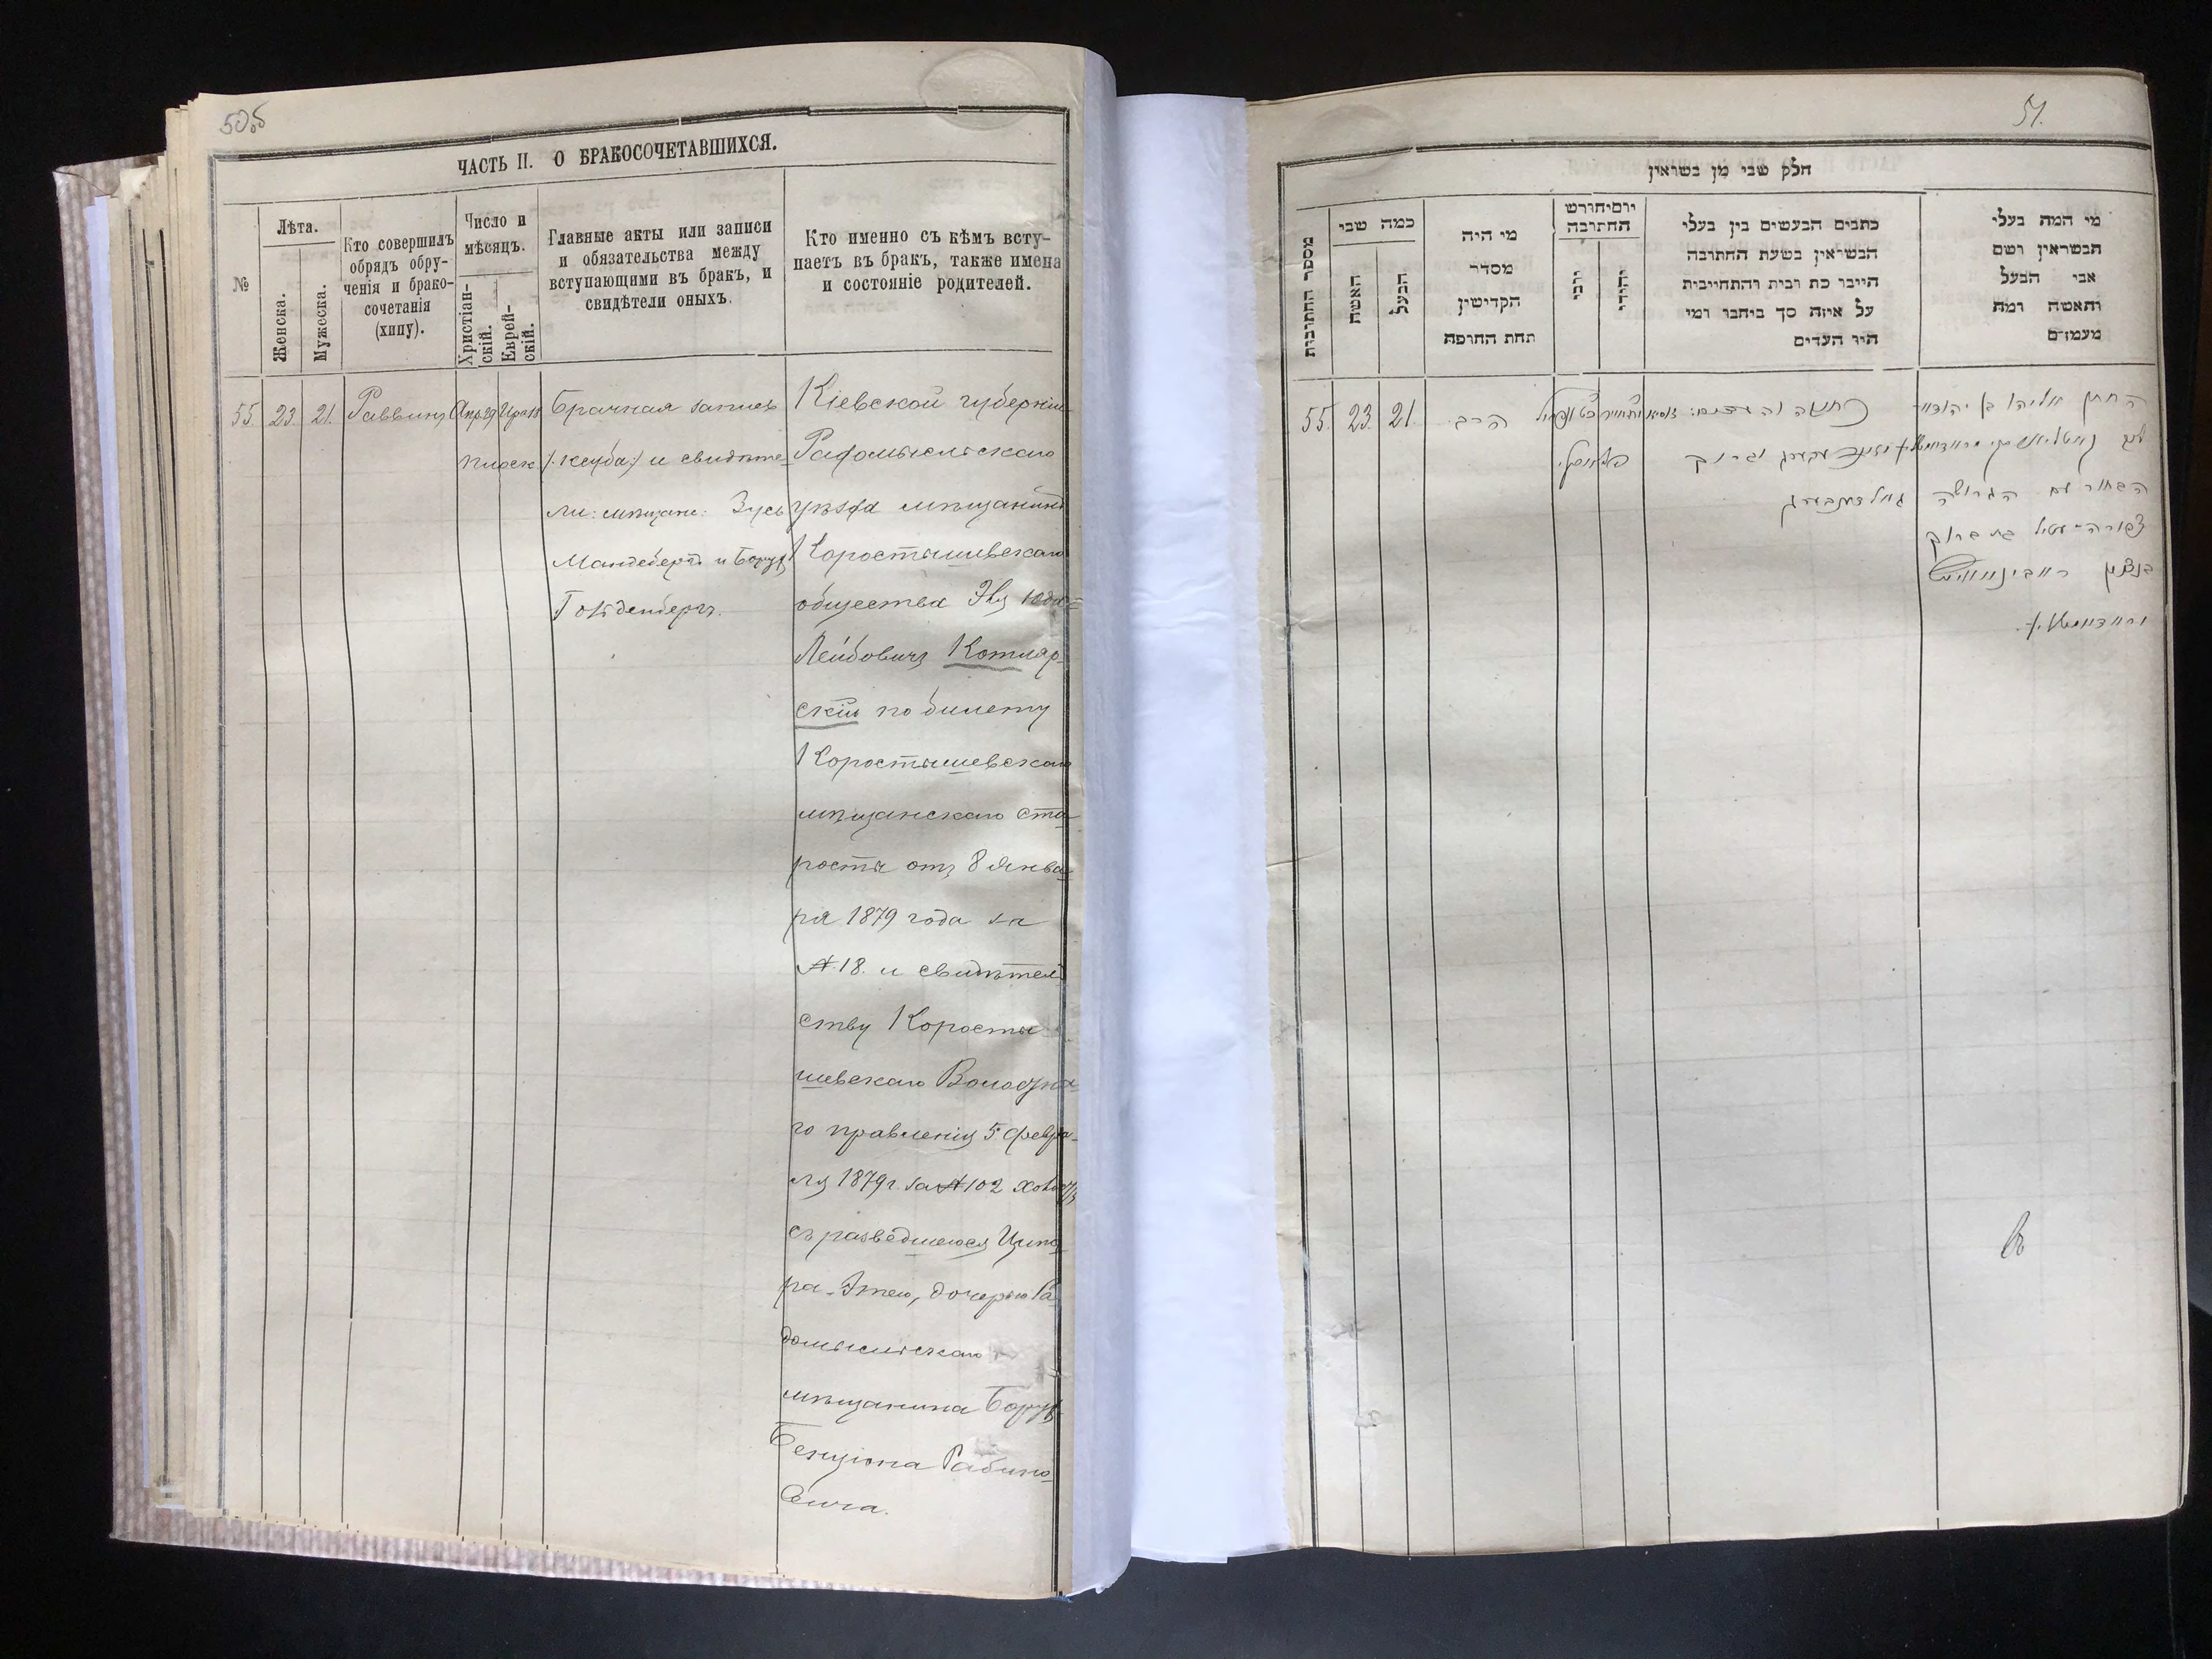 50об
ЧАСТЬ II. О БРАКОСОЧЕТАВШИХСЯ.
№
Лѣта.
Женска.
Мужеска.
Кто совершилъ
обрядъ обру-
ченія и брако-
сочетанія
(хипу).
Число и
мѣсяцъ.
Христіан-
скій.
Еврей-
скій.
Главные акты или записи
и обязательства между
вступающими въ бракъ, и
свидѣтели оныхъ.
Кто именно съ кѣмъ всту-
паетъ въ бракъ, также имена
и состояніе родителей.
55.
23.
21.
Раввинъ
Брачная запись
/: кесуба :/ и свидѣте-
ли: мѣщане: Зусь
и Борухъ
Гольденбергъ.
Кіевской губерніи
Радомысльскаго
уѣзда мѣщанинъ
Коростышевскаго
общества
Лейбовичъ Котляр-
скій по билету
Коростышевскаго
мѣщанскаго ста-
росты отъ 8 Янва-
ря 1879 года за
№ 18. и свидѣтель
ству Коросты
шевскаго Волостна-
го правленія 5 февра-
ля 1879 г. за № 102 холостъ
съ разведшеюся Ципо-
ра-Этею, дочерью Ра
домысльскаго
мѣщанина Борух
Бенціона Рабино-
вича.
51.
חלק שני מן נשואין
מספר החתונות
כמה שני
האשה
הבעל
מי היה
מסדר
הקדישין
תחת החופה
יום וחודש
החתונה
יוני
יהודי
כתבים הנעשים בין בעלי
הנשואין בשעת החתונה
היינו כת ובית והתחייבית
על איזה סך ביחבו ומי
היו העדים
מי המה בעלי
הנשואין ושם
אבי הבעל
והאשה ומה
מעמדם
55.
23.
21.
הרב
החתן אליהו בן יהודא
הבחור עם הגרושה
גאלדענבערג
צפורה-עטיל בת ברוך
בנציון ראבינאוויטש